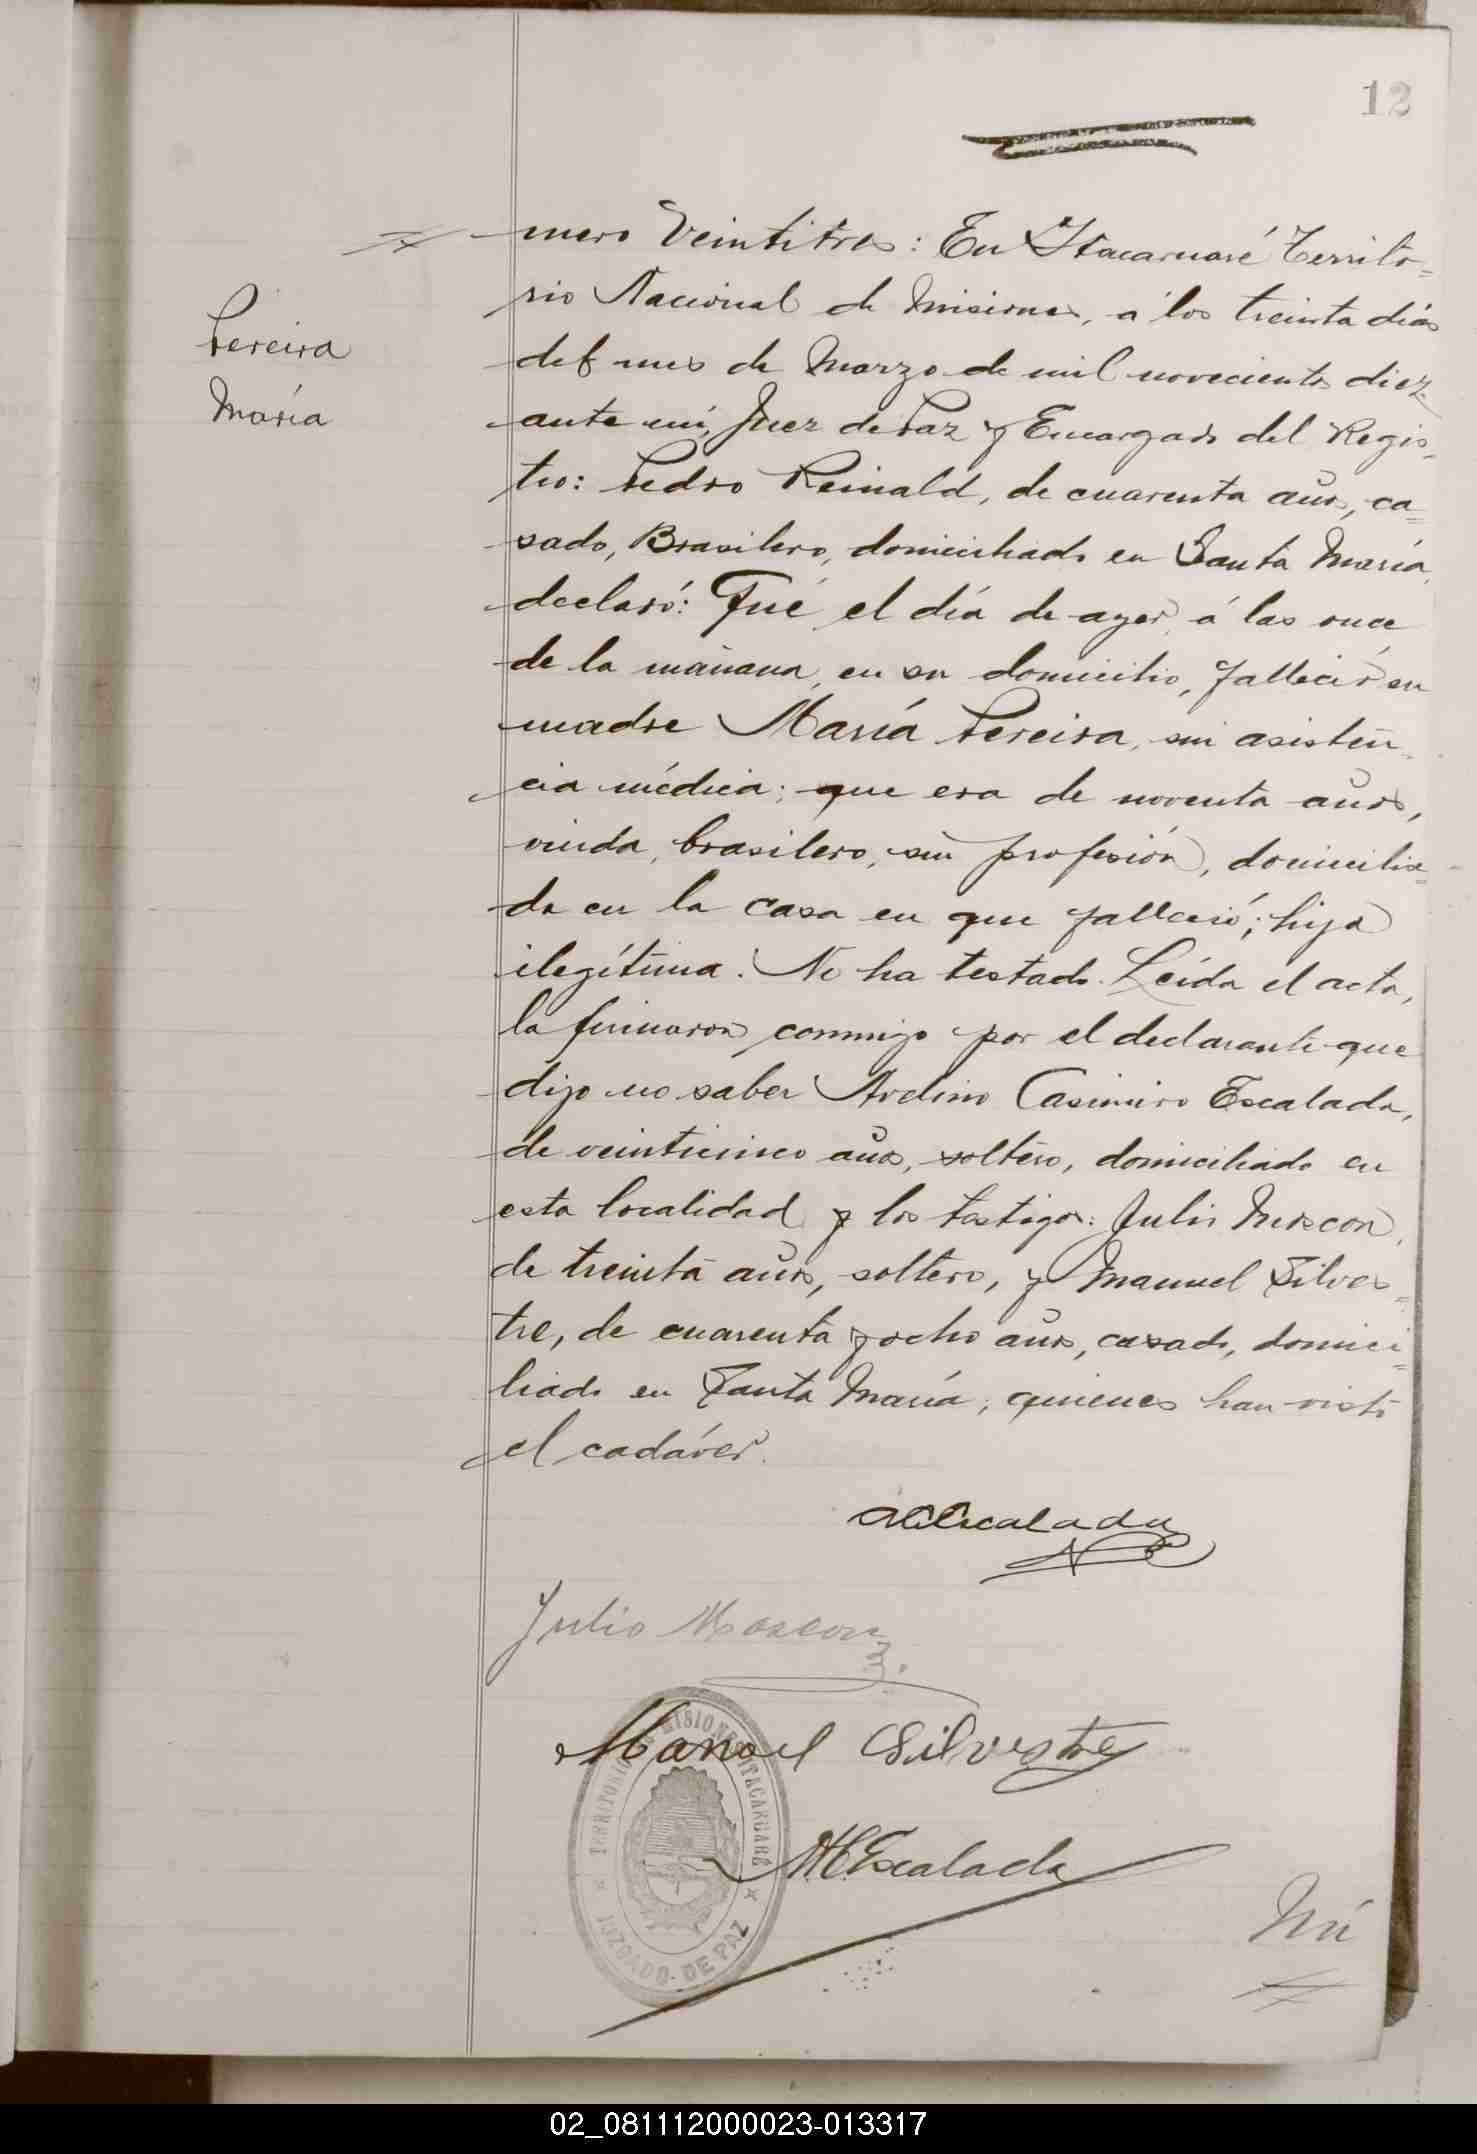 12
mero Veintitres: En Itacaruaré Territo-
rio Nacional de Misiones, á los treinta días
del mes de Marzo de mil novecientos diez
ante mí, Juez de Paz y Encargado del Regis-
tro: Pedro Reinald, de cuarenta años, ca=
sado, Brasilero, domiciliado en Santa María,
declaró: Fué el día de ayer, á las once
de la mañana, en su domicilio, falleció su
madre María Pereira, sin asisten-
cia médica; que era de noventa años,
viuda, brasilero, sin profesión, domicilia=
da en la casa en que falleció; hija
ilegítima. No ha testado. Leída el acta,
la firmaron conmigo por el declarante que
dijo no saber Avelino Casimiro Escalada,
de veinticinco años, soltero, domiciliado en
esta localidad y los testigos: Julio Moscon,
de treinta años, soltero, y Manuel Silves=
tre, de cuarenta y ocho años, casado, domici=
liado en Santa María, quienes han visto
el cadáver.
Pereira
María
ACEscalada
Julio Moscon
Manoel Silvestre
Escalada
TERRITORIO DE MISIONES ITACARUARÉ
JUZGADO DE PAZ
Nú
02_081112000023-013317